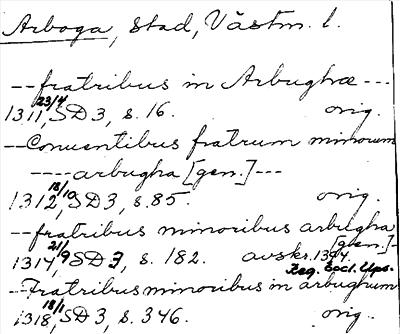 Arboga, stad, Västm. l.
--fratribus in Arbughæ---
1311 23/4, SD 3, s. 16. orig.
--Conuentibus fratrum minorum
----arbugha [gen.]---
1312 18/10, SD 3, s. 85. orig.
--fratribus minoribus arbugha
[gen.]-
1314 21/9, SD 3, s. 182. avskr. 1344.
Reg. Eccl. Ups.
--Fratribus minoribus in arbughum
1318 18/1, SD 3, s. 346. orig.